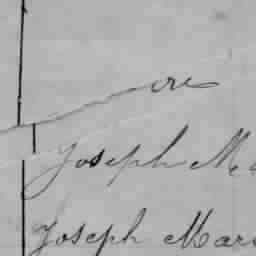 Joseph Ma
Joseph Mar